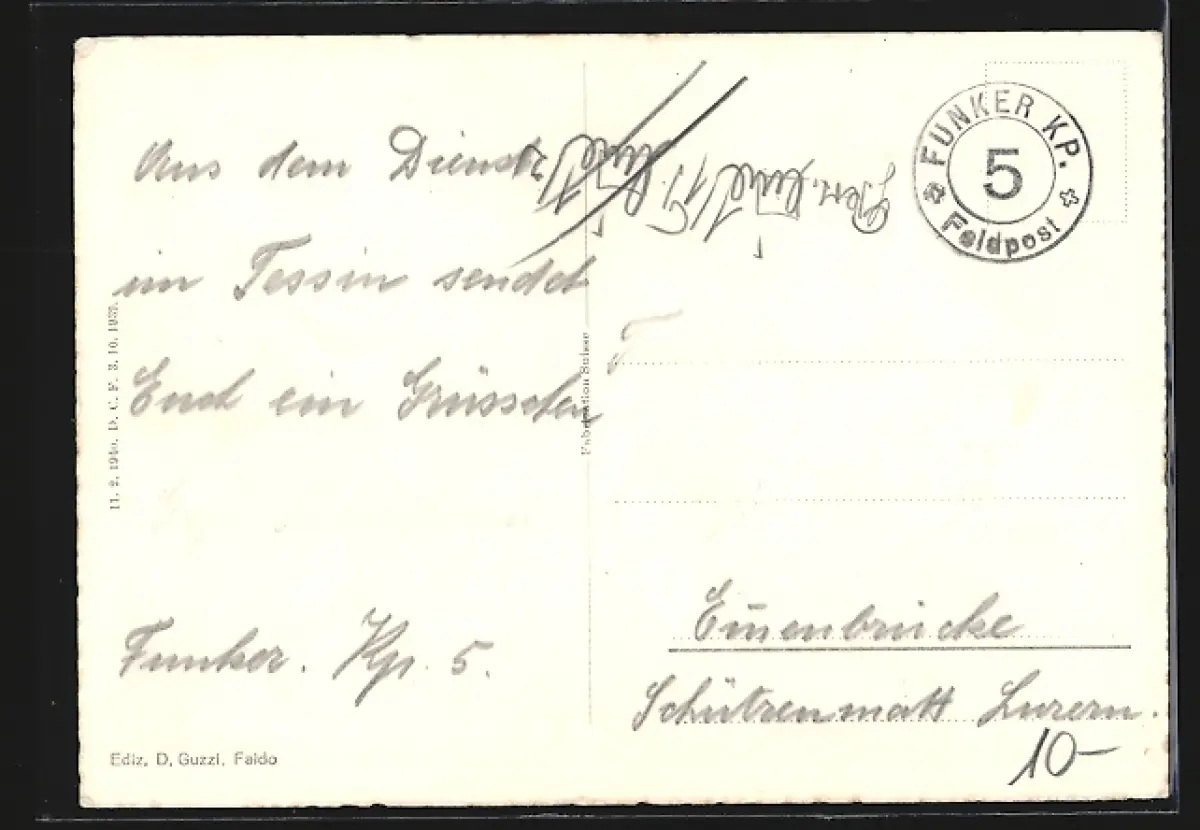 Aus dem Dienst
im Tessin sendet
Euch ein Grüsschen
Funker. Kp. 5.
Ediz. D. Guzzi, Faido
11. 2. 1940. D. C. F. 3. 10. 1939.
Fabrication Suisse
FUNKER KP.
5
Feldpost
Emmenbrücke
Schützenmatt Luzern.
10-